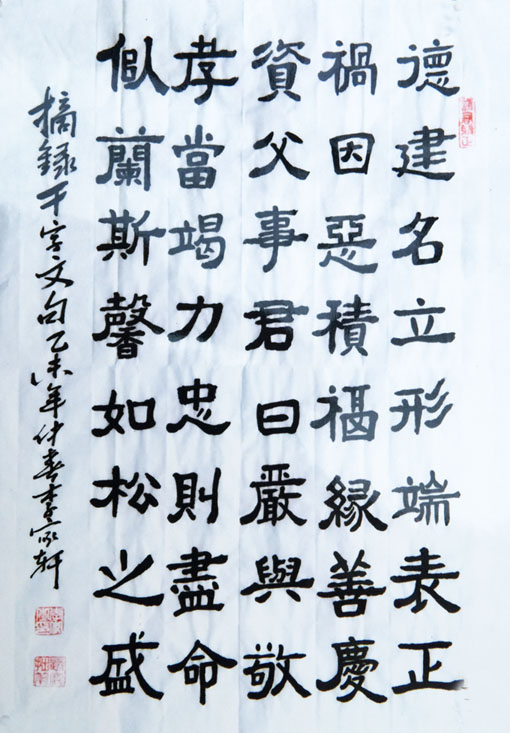 德建名立形端表正
禍因惡積福緣善慶
資父事君曰嚴與敬
孝當竭力忠則盡命
似蘭斯馨如松之盛
摘録千字文句乙未年仲春李軒